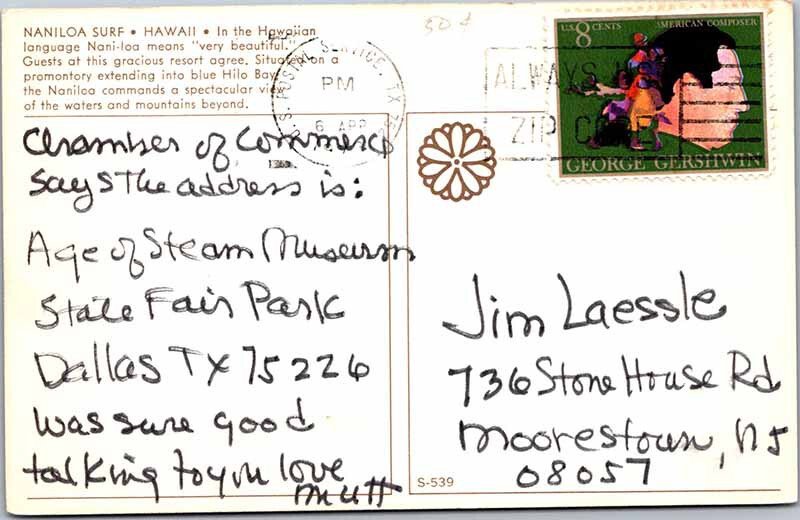 NANILOA SURF • HAWAII • In the Hawaiian
language Nani-loa means "very beautiful."
Guests at this gracious resort agree. Situated on a
promontory extending into blue Hilo Bay
the Naniloa commands a spectacular view
of the waters and mountains beyond.
50¢
U.S. POSTAL SERVICE, TX
PM
6 APR
ALWAYS USE
ZIP CODE
U.S. 8 CENTS AMERICAN COMPOSER
GEORGE GERSHWIN
Chamber of Commerce
says the address is:
Age of Steam Museum
State Fair Park
Dallas TX 75226
was sure good
talking to you love
mutt
Jim Laessle
736 Stone House Rd
Moorestown, NJ
08057
S-539